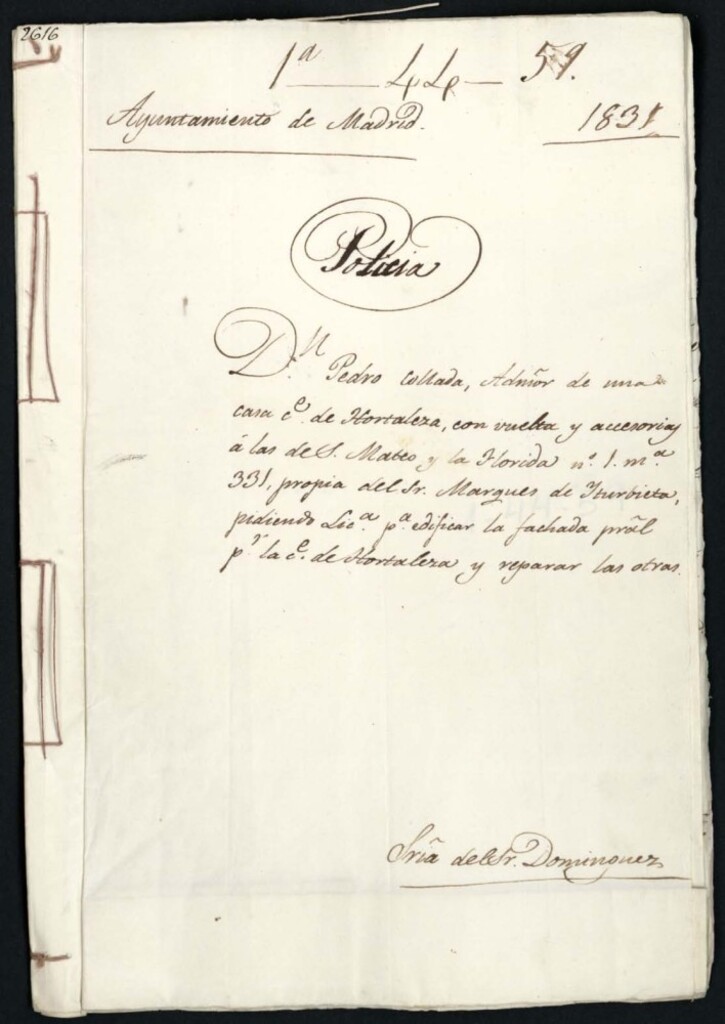 2616
1ª — 44 — 59.
Ayuntamiento de Madrid. 1831
Policia
D.ⁿ Pedro Collada, Admõr de una
casa c.ᵉ de Hortaleza, con vuelta y accesorias
á las de S. Mateo y la Florida nº. 1. m.ª
331, propia del Sr. Marques de Yturbieta,
pidiendo Lic.ª p.ª edificar la fachada prãl
p.ʳ la c.ᵉ de Hortaleza y reparar las otras.
Srĩa del Sr. Dominguez